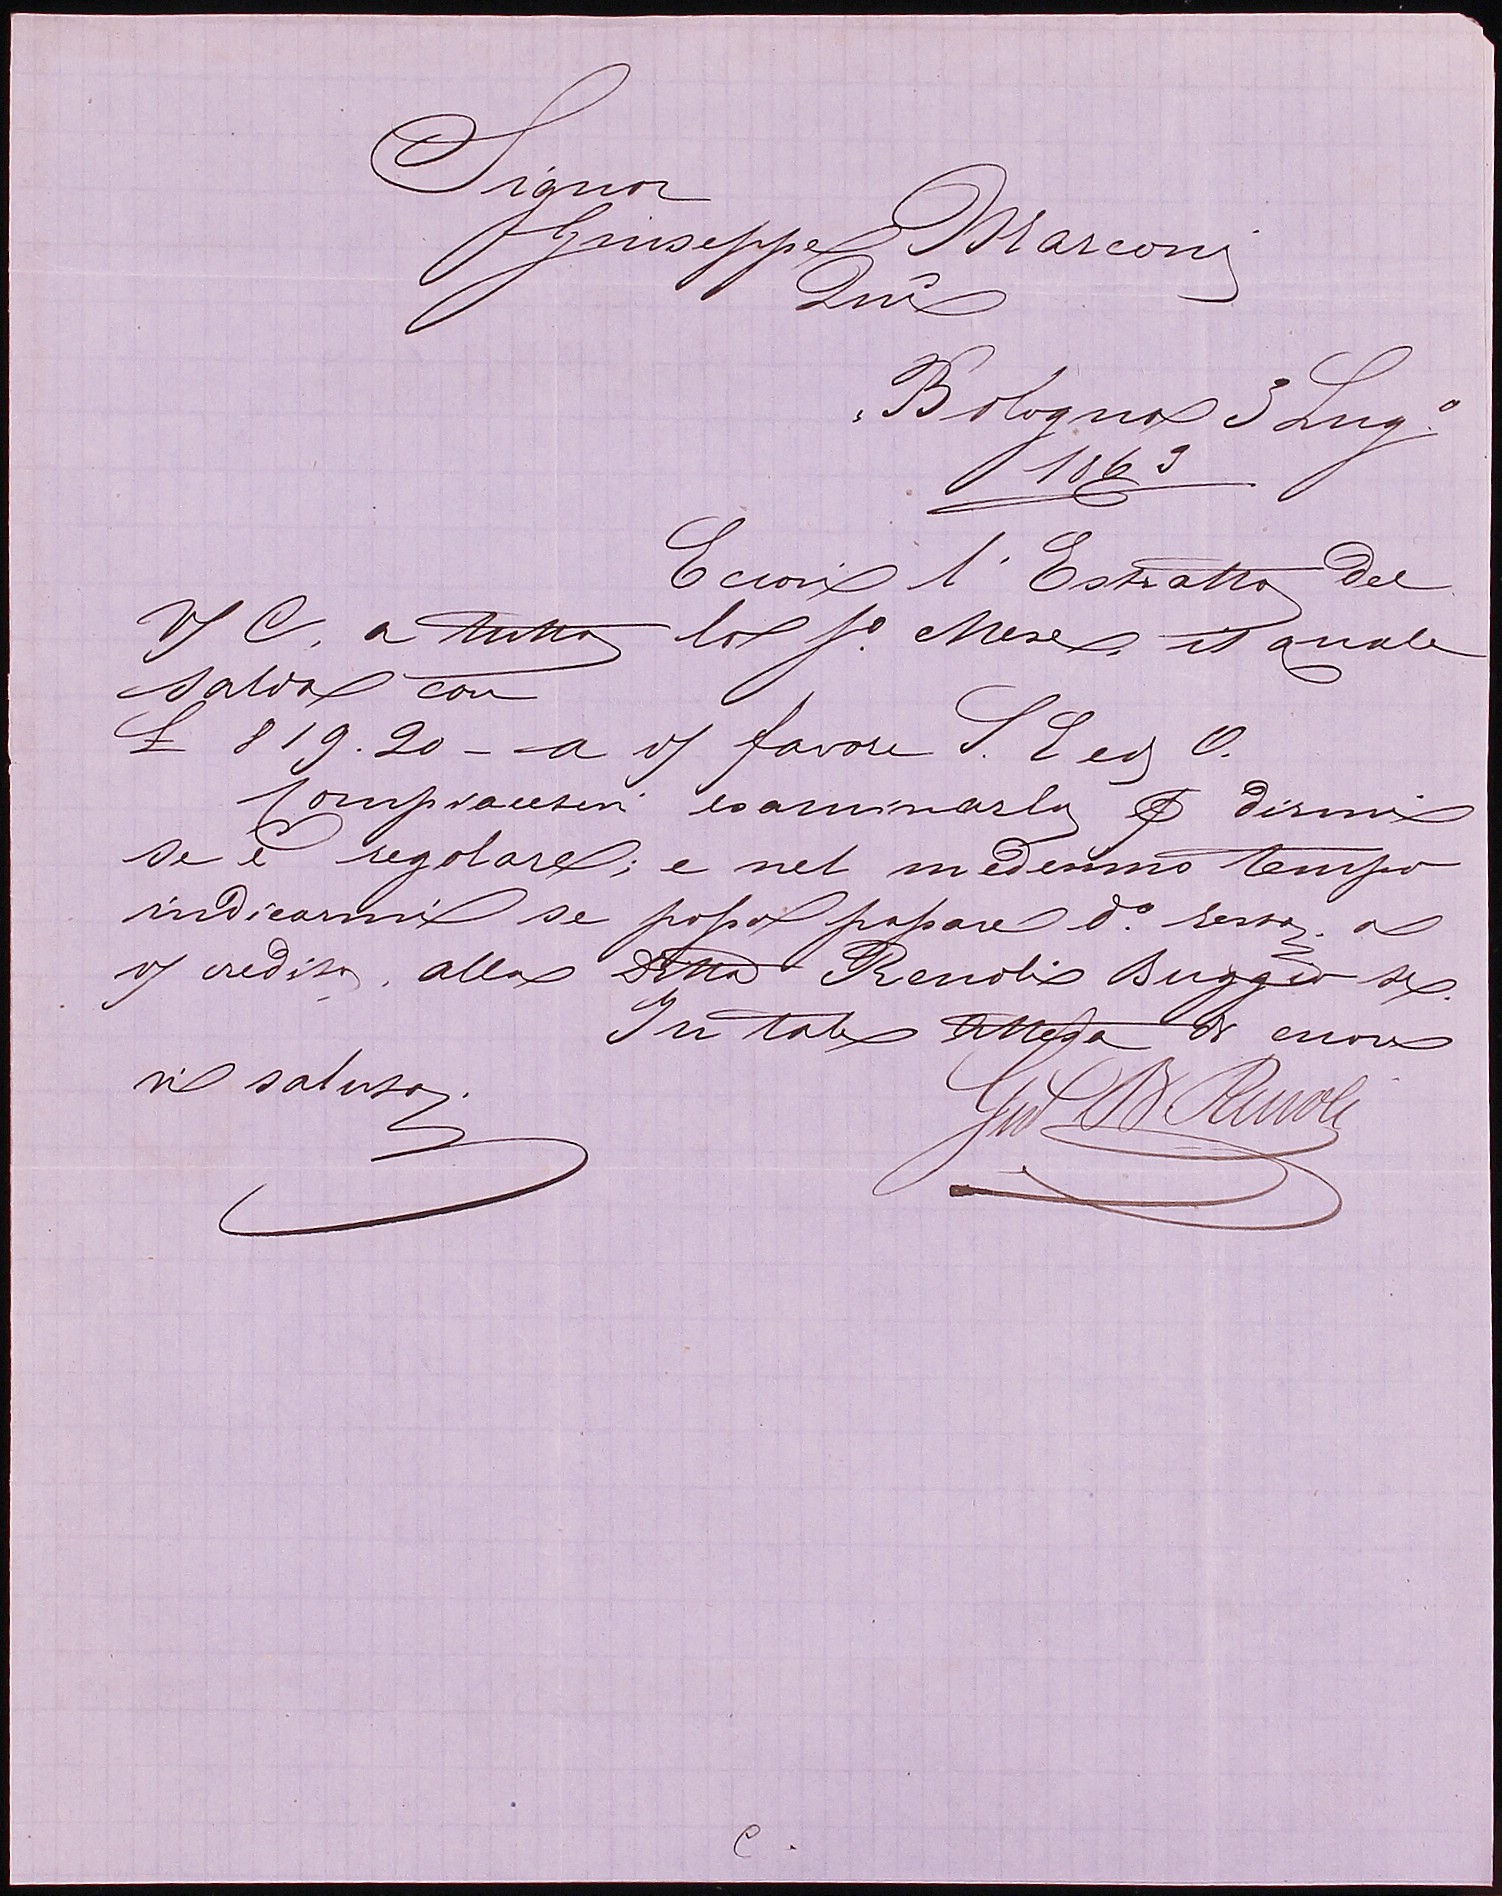 Signor
Giuseppe Marconi
Qui
Bologna 3 Lug.o
1863
Eccovi l'Estratto del
V/ C. a tutto lo s.o Mese, il quale
salda con
£ 819.20 – a V/ favore S. E ed O.
Compiacetevi esaminarlo e dirmi
se è regolare; e nel medesimo tempo
indicarmi se posso passare d.o resto a
V/ credito, alla Ditta Renoli Buggio se.
In tale attesa di cuore
vi saluto.
Gio B. Renoli
C.